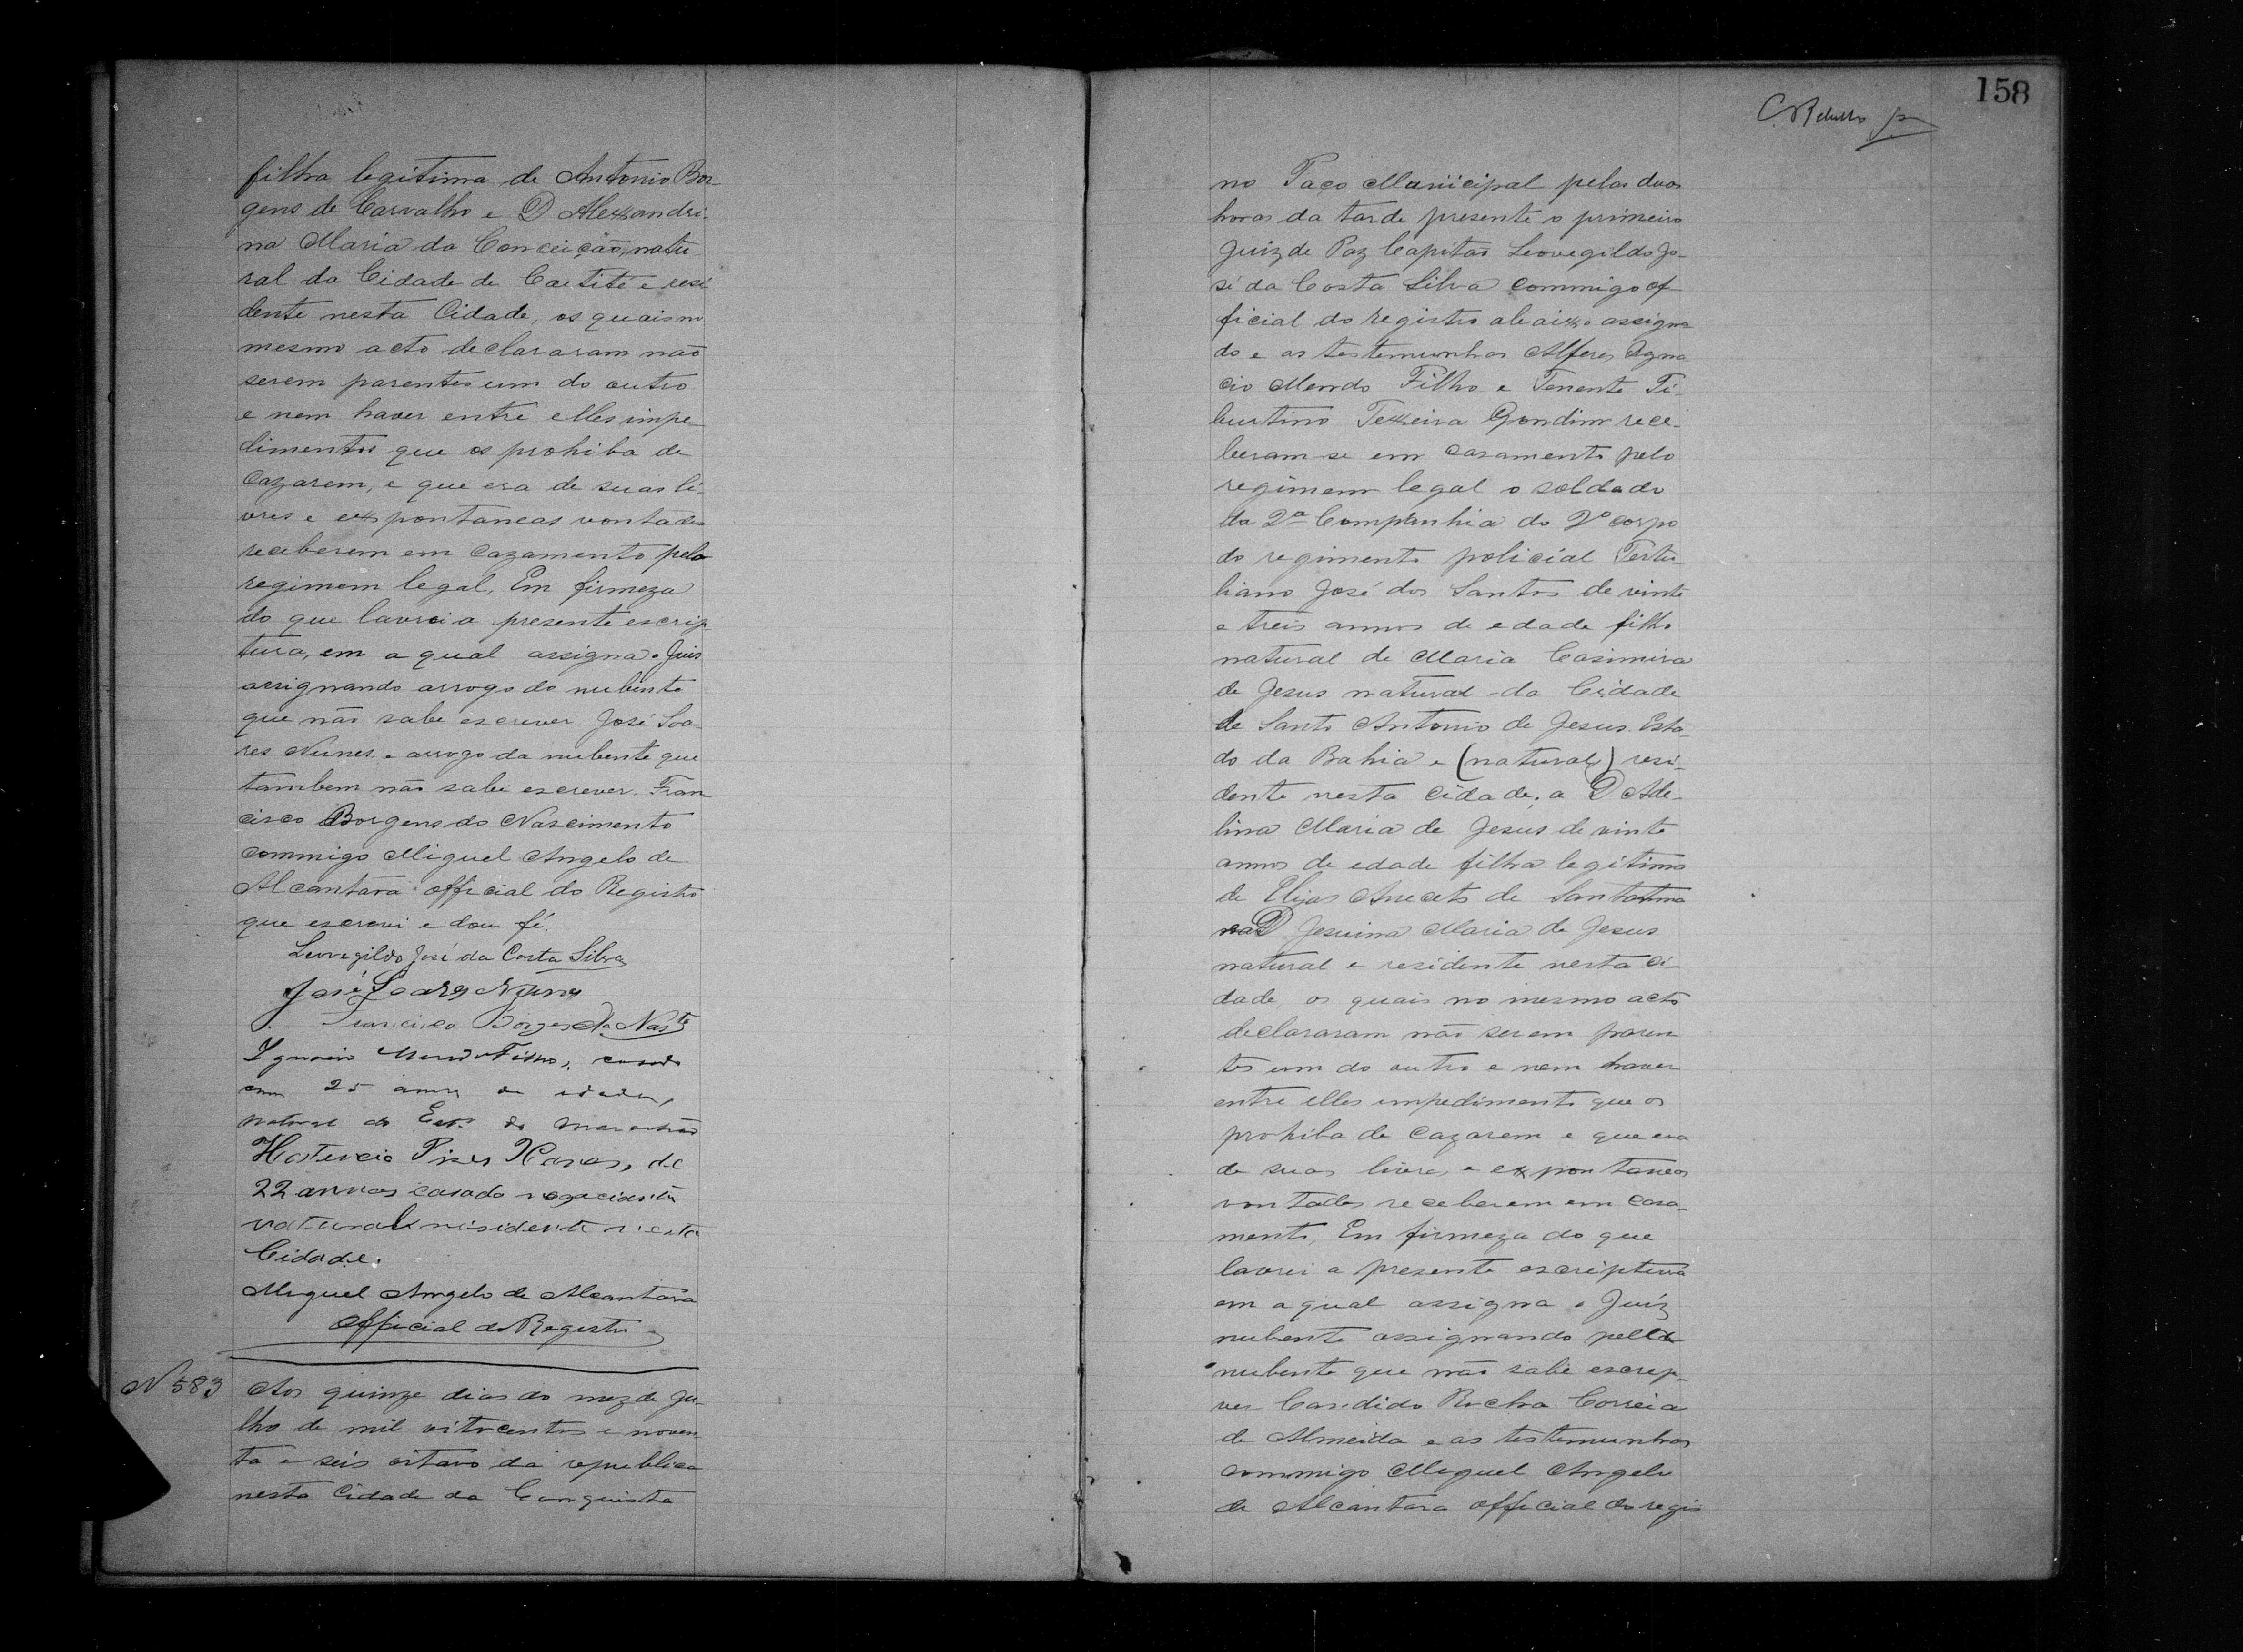 filha legitima de Antonio Bor-
gens de Carvalho e D Alexandri-
na Maria da Conceição, natu
ral da Cidade de Caetité e resi
dente nesta Cidade, os quais no
mesmo acto declararam não
serem parentes um do outro
e nem haver entre elles impe-
dimentos que os prohiba de
Cazarem, e que era de suas li-
vres e expontaneas vontades
receberem em cazamento pelo
regimem legal. Em firmeza
do que lavrei a presente escrip-
tura, em a qual assigna o Juis
assignando arrogo do nubente
que não sabe escrever José Soa-
res Nunes e arrogo da nubente que
tambem não sabe escrever Fran
cisco Borgens do Nascimento
commigo Miguel Angelo de
Alcantara official do Registro
que escrevi e dou fé.
Leovegildo José da Costa Silva
José Soares Nunes
Francisco Borges do Nasto
Ignacio Mendo Filho, casado
com 25 annos de idade,
natural do Esto do Maranhão
Hortencio Pires, de
22 annos casado negociante
natural residente nesta
Cidade.
Miguel Angelo de Alcantara
Official do Registro
N 583
Aos quinze dias do mez de Ju-
lho de mil oitocentos e noven
ta e seis oitavo da republica
nesta Cidade da Conquista
158
no Paço Municipal pelas duas
horas da tarde presente o primeiro
Juiz de Paz Capitão Leovegildo Jo-
sé da Costa Silva commigo of
ficial do registro abaixo assigna
do e as testemunhas Alferes Igna
cio Mendo Filho e Tenente Ti-
burtino Texeira Gondim rece-
beram-se em casamento pelo
regimem legal o soldado
da 2ª Companhia do 2º corpo
do regimento policial Tertu
liano José dos Santos de vinte
e treis annos de edade filho
natural de Maria Casimira
de Jesus natural da Cidade
de Santo Antonio de Jesus Esta-
do da Bahia e (natural) resi-
dente nesta Cidade; a D Ade-
lina Maria de Jesus de vinte
annos de edade filha legitima
de Elias Aniceto de Santanna
D Jesuina Maria de Jesus
natural e residente nesta ci-
dade os quais no mesmo acto
declararam não serem paren
tes um do outro e nem haver
entre elles impedimento que os
prohiba de Cazarem e que era
de suas livres e expontaneas
vontades receberem em casa-
mento, Em firmeza do que
lavrei a presente escriptura
em a qual assigna o Juiz
nubente assignando pella
nubente que não sabe escrep-
ver Candido Rocha Correia
de Almeida e as testemunhas
commigo Miguel Angelo
de Alcantara official do regis